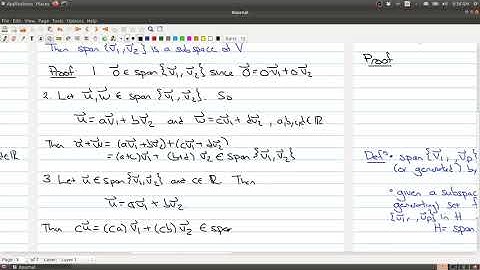 Applications Places
Xournal
File Edit View Journal Tools Options Help
Then span {v⃗1, v⃗2} is a subspace of V
Proof 1. 0⃗ ∈ span {v⃗1, v⃗2} since 0⃗ = 0v⃗1 + 0v⃗2
2. Let u⃗, w⃗ ∈ span {v⃗1, v⃗2}. So
u⃗ = av⃗1 + bv⃗2 and w⃗ = cv⃗1 + dv⃗2, a,b,c,d ∈ ℝ
Then u⃗ + w⃗ = (av⃗1 + bv⃗2) + (cv⃗1 + dv⃗2)
= (a+c)v⃗1 + (b+d) v⃗2 ∈ span {v⃗1, v⃗2}
3. Let u⃗ ∈ span {v⃗1, v⃗2} and c ∈ ℝ. Then
u⃗ = av⃗1 + bv⃗2
Then cu⃗ = (ca) v⃗1 + (cb) v⃗2 ∈ span
d ∈ ℝ
Proof
Def's • span {v⃗1, , v⃗p}
(or generated) b
• given a subspac
generating set f
{v⃗1, , v⃗p} in H
H = span
Page Layer: Layer 1
Xournal